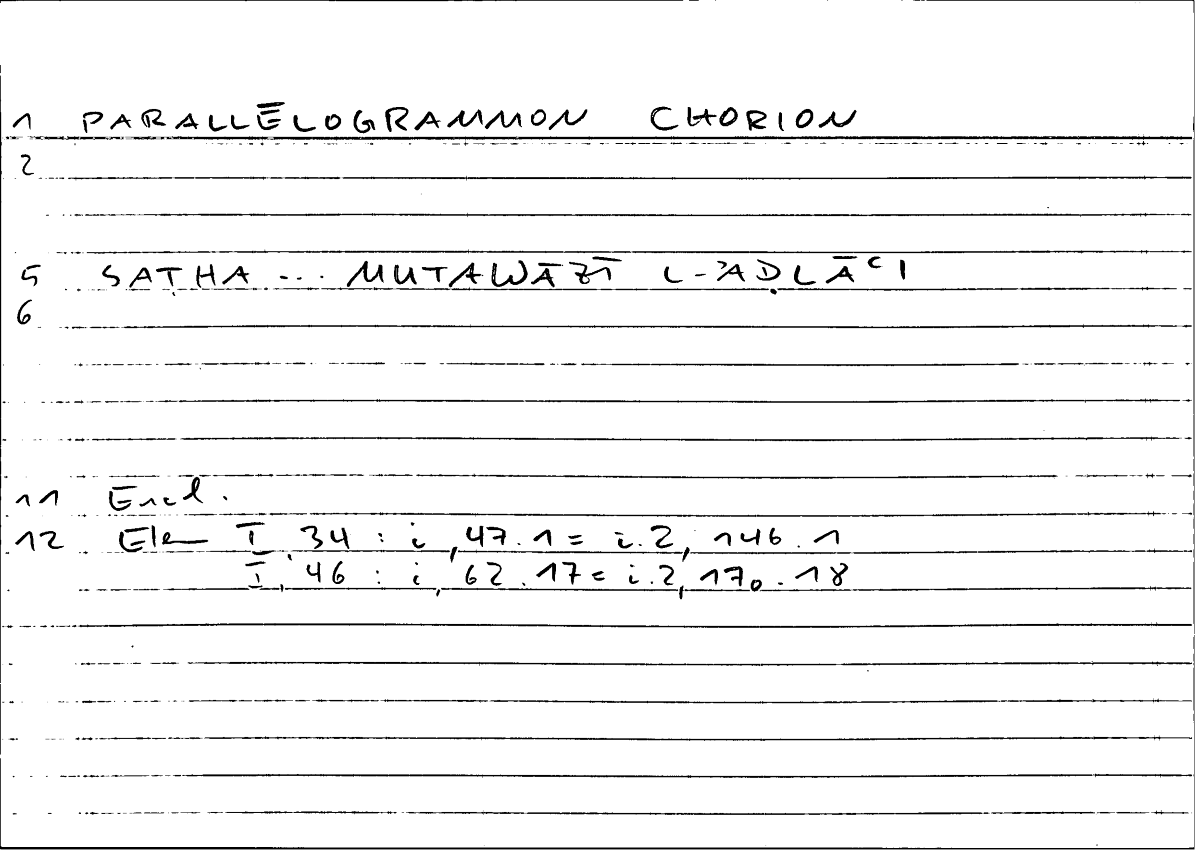 1 PARALLĒLOGRAMMON CHORION
2
5 SAṬHA ... MUTAWĀZĪ L-ʾAḌLĀʿI
6
11 Eucl.
12 Elem I, 34 : i, 47.1 = i.2, 146.1
I, 46 : i, 62.17 = i.2, 170.18